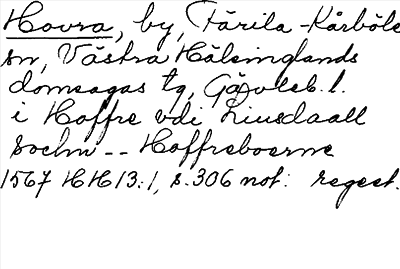 Hovra, by, Färila-Kårböle
sn, Västra Hälsinglands
domsagas tg, Gävleb. l.
i Hoffre vdi Liusdaall
sochn -- Hoffreboerne
1567 HH 13:1, s. 306 not: regest.